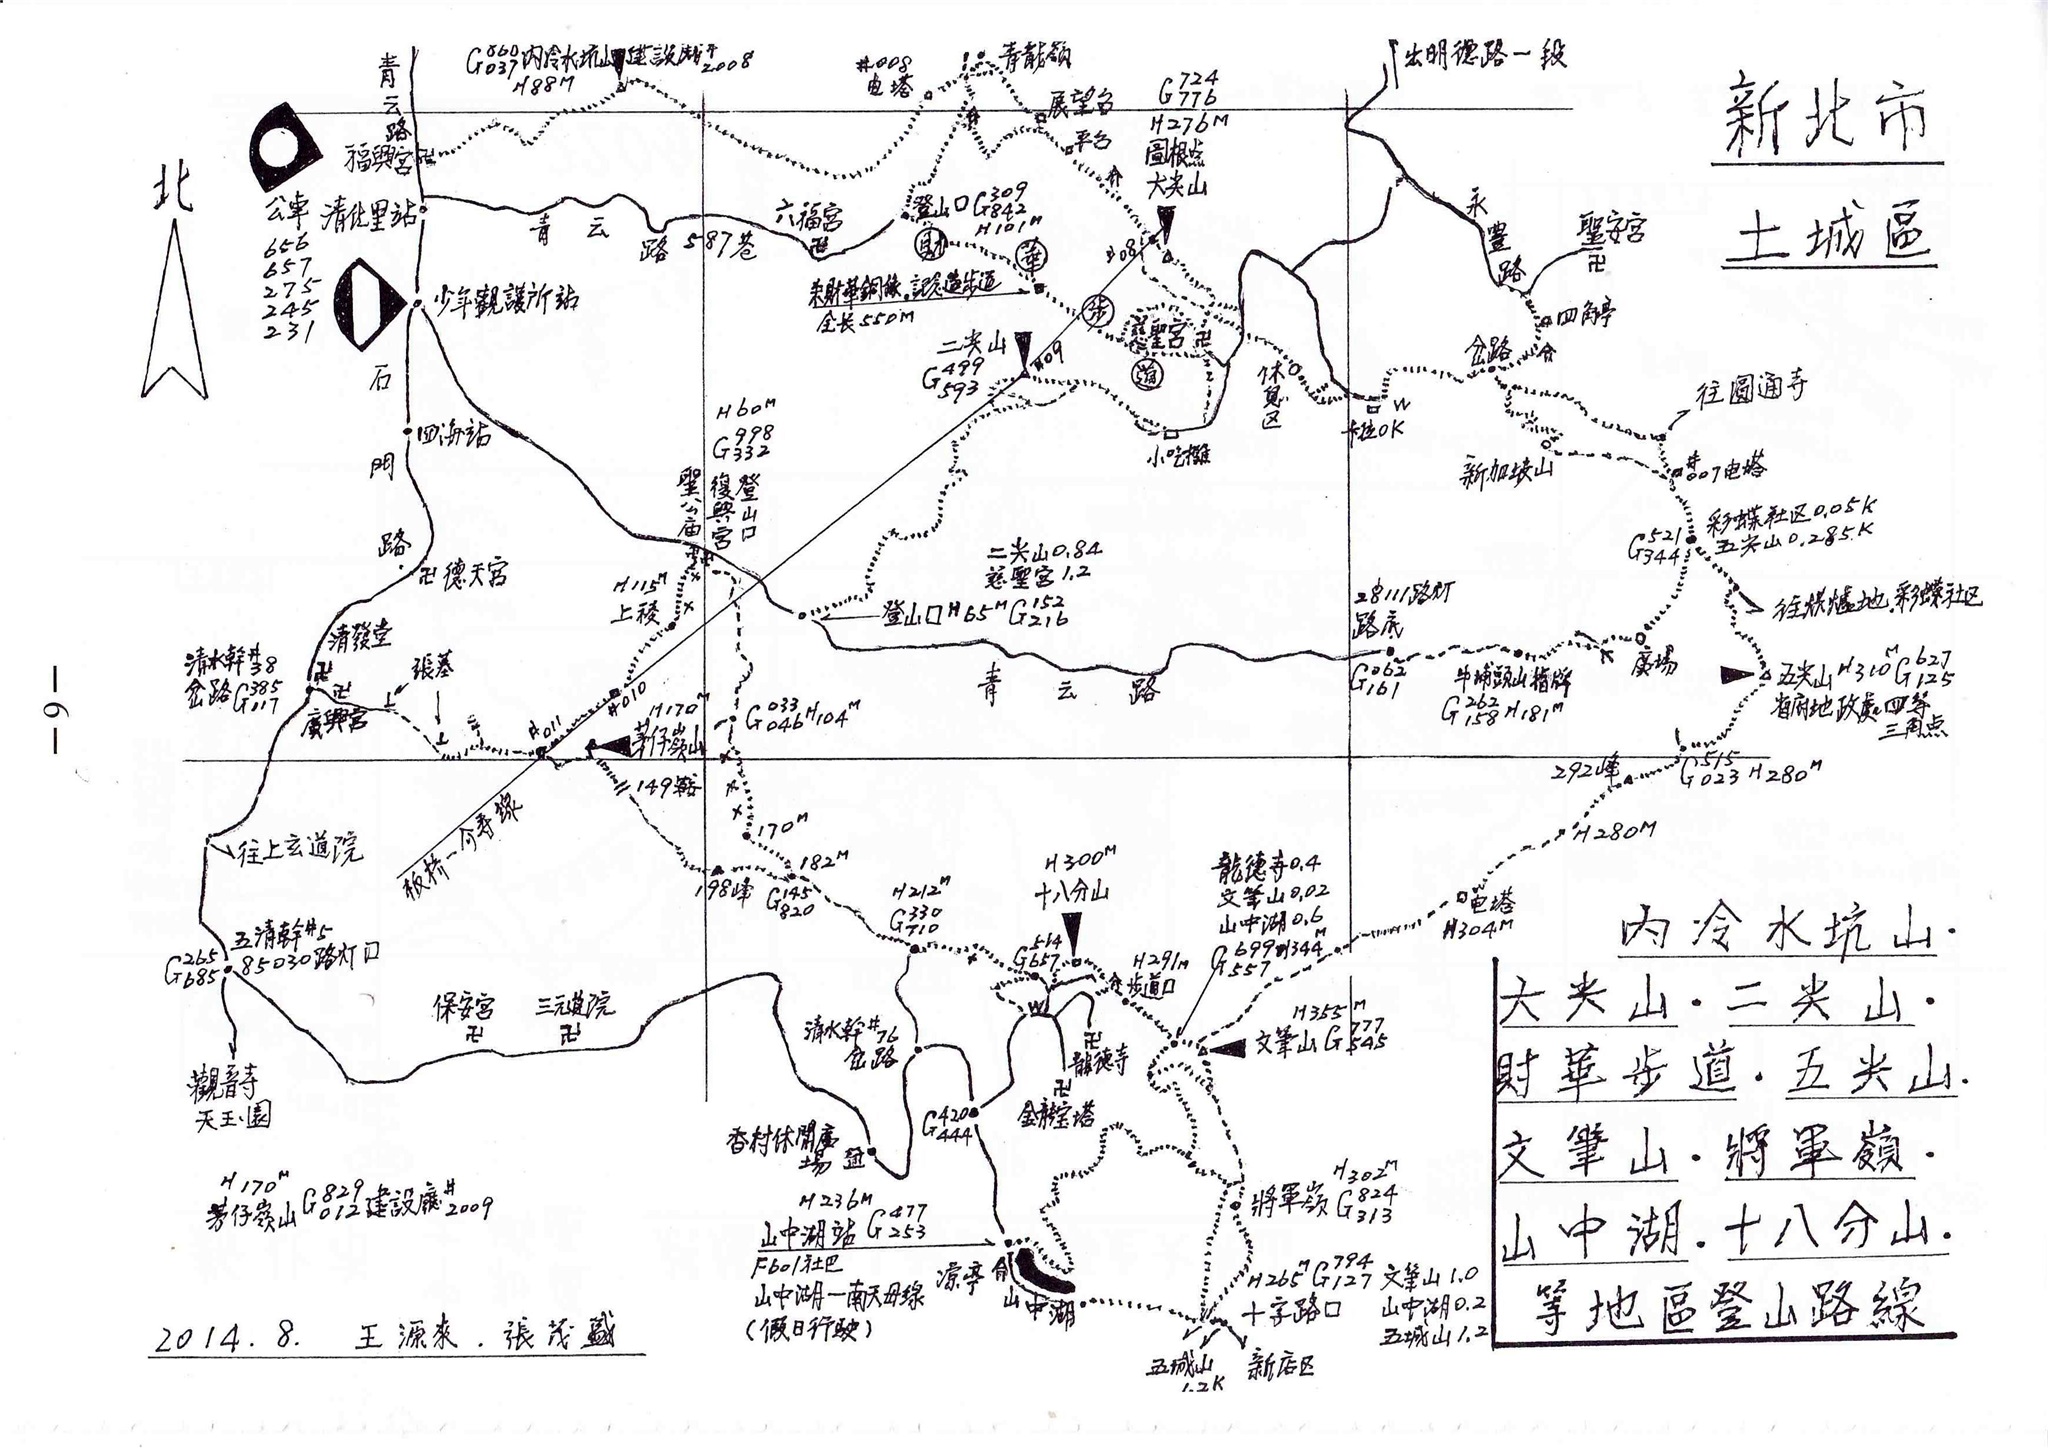 新北市
土城區
內冷水坑山.
大尖山.二尖山.
財華步道.五尖山.
文筆山.將軍嶺.
山中湖.十八分山.
等地區登山路線
北
青云路
福興宮
G 860 037 內冷水坑山建設廳# 2008
H88M
#008
电塔
青龍嶺
展望台
平台
G 724 776
H276M
圖根点
大尖山
出明德路一段
公車
656
657
275
245
231
清化里站
少年觀護所站
青云路587巷
六福宮
登山口 G 309 842
H101M
財
華
步
道
朱財華銅像.記念道步道
全长550M
慈聖宮
永豊路
聖安宮
四角亭
岔路
往圓通寺
二尖山
G 499 593
#09
#08
休息区
卡拉OK
W
小吃攤
新加坡山
#007电塔
石門路
四海站
H60M
G 998 332
聖公庙
復興宮
登山口
德天宮
H115M
上稜
二尖山0.84
慈聖宮1.2
登山口H65M G 152 216
28111路灯
路底
G 062 161
青云路
牛埔頭山指牌
G 262 158 H181M
廣場
G 521 344
彩蝶社区0.05K
五尖山0.285K
往烘爐地彩蝶社区
五尖山H310M G 627 125
省府地政處四等
三角点
清水幹#38
岔路G 385 017
清發堂
廣興宮
張墓
#011
#010
H170M
茅仔嶺山
149鞍
G 033 046 H104M
292峰
G 515 023 H280M
H280M
往上玄道院
板桥一
170M
182M
198峰
G 145 820
H212M
G 330 710
H300M
十八分山
G 514 657
H291M
步道口
龍德寺0.4
文筆山0.02
山中湖0.6
G 699 557 H344M
电塔
H304M
G 265 685
五清幹#5
85030路灯口
觀音寺
天玉園
保安宮
三元道院
清水幹#76
岔路
W
龍德寺
金龍宝塔
H355M
文筆山 G 777 545
G 420 444
香村休閒廣
場
H170M
茅仔嶺山 G 829 012 建設廳# 2009
H236M
山中湖站 G 477 253
F601社巴
山中湖一南天母線
(假日行駛)
凉亭
山中湖
H302M
將軍嶺 G 824 313
H265M G 794 127
十字路口
文筆山1.0
山中湖0.2
五城山1.2
五城山
1.2K
新店区
2014.8. 王源來.張茂盛
-9-